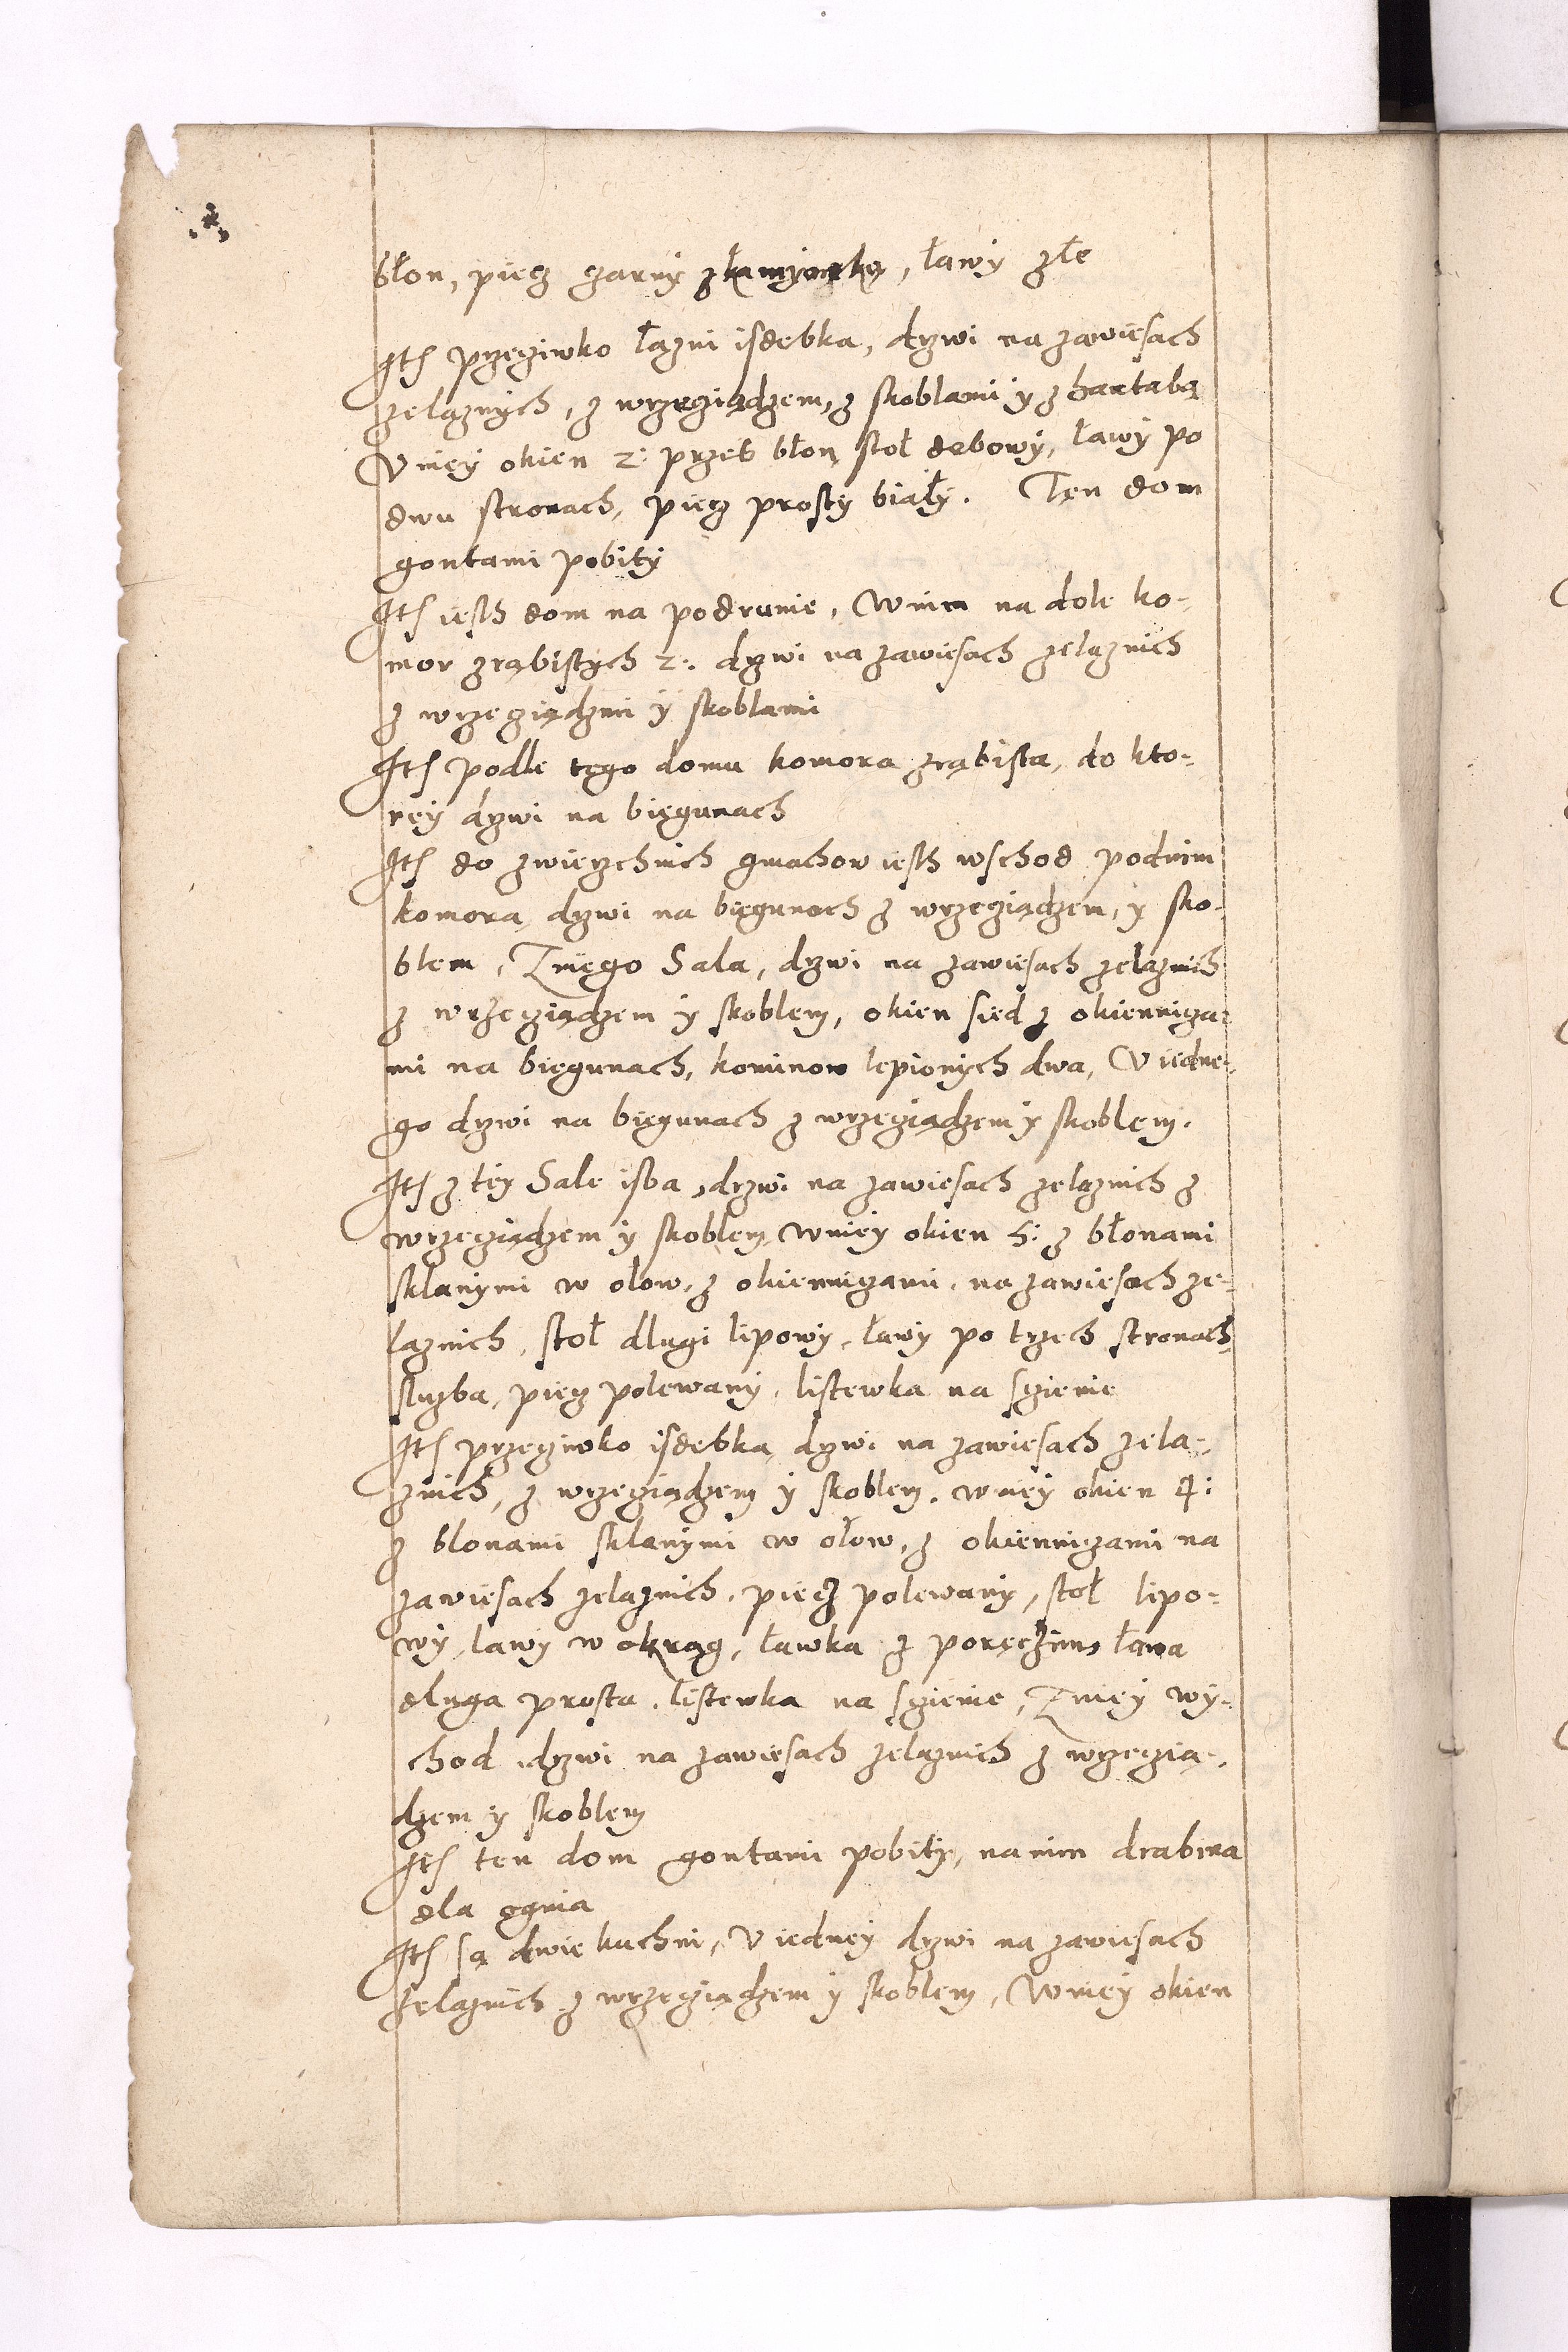 błon, piecz czarny, ławy złe
Itħ przeciwko łazni isdebka, drzwi na zawiesach
zelaznych, z wrzeciądzem, z skoblami y z hartabą
V niey okien 2: przes błon, stoł dębowy, ławy po
dwu stronach, piecz prosty biały. Ten dom
gontami pobity
Itħ iesth dom na podrunie, W nim na dole ko-
mor zrąbistych 2:. drzwi na zawiesach zelaznich
z wrzeciądzmi y skoblami
Itħ podle tego domu komora zrąbista, do kto-
rey drzwi na biegunach
Itħ do zwierzchnich gmachow iesth wschod pod nim
komora, drzwi na biegunach z wrzeciądzem, y sko-
blem, Z niego Sala, drzwi na zawiesach zelaznich
z wrzeciądzem y skoblem, okien sied z okiennicza-
mi na biegunach, kominow lepionych dwa, V iedne-
go drzwi na biegunach z wrzeciądzem y skoblem.
Itħ z tey Sale isba, drzwi na zawiesach zelaznich z
wrzeciądzem y skoblem, W niey okien 5: z błonami
sklanymi w olow, z okienniczami, na zawiesach ze-
laznich, stoł dlugi lipowy, ławy po trzech stronach,
sluzba, piecz polewany, listewka na scienie
Itħ przeciwko isdebka, drzwi na zawiesach zela-
znich, z wrzeciądzem y skoblem. w niey okien 4:
z blonami sklanymi w ołow, z okiennicami na
zawiesach zelaznich, piecz polewany, stoł lipo-
wy, lawy w okrąg, ławka z poręczim, ława
dluga prosta, listewka na scienie, Z niey wy-
chod, drzwi na zawiesach zelaznich z wrzecią-
dzem y skoblem
Itħ ten dom gontami pobity, na nim drabina
dla ognia
Itħ są dwie kuchni, V iedney drzwi na zawiesach
zelaznich z wrzeciądzem y skoblem, W niey okien